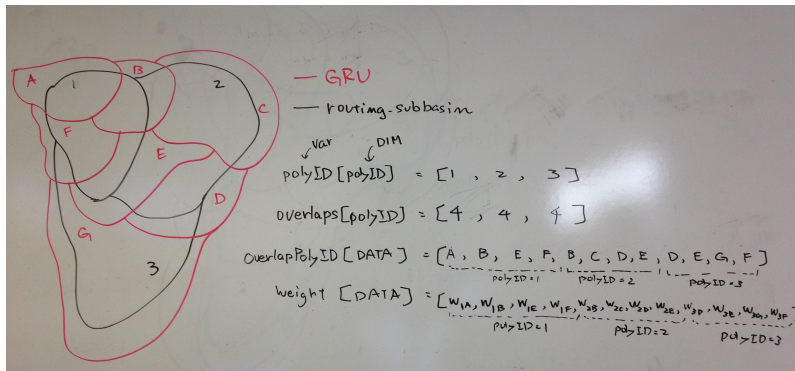 A
1
B
2
C
F
E
D
G
3
— GRU
— routing-subbasin
var
DIM
polyID[polyID] = [1 , 2 , 3]
overlaps[polyID] = [4 , 4 , 4]
overlapPolyID[DATA] = [A, B, E, F, B, C, D, E, D, E, G, F]
polyID=1 polyID=2 polyID=3
weight [DATA] = [W1A, W1B, W1E, W1F, W2B, W2C, W2D, W2E, W3D, W3E, W3G, W3F
polyID=1 polyID=2 polyID=3